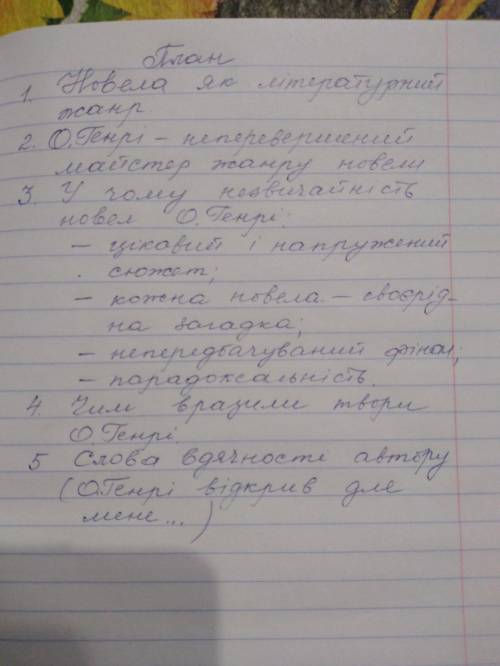 План
1. Новела як літературний
жанр.
2. О.Генрі – неперевершений
майстер жанру новели
3. У чому незвичайність
новел О.Генрі:
– цікавий і напружений
сюжет;
– кожна новела – своєрід-
на загадка;
– непередбачуваний фінал;
– парадоксальність.
4. Чим вразили твори
О.Генрі.
5 Слова вдячності автору
(О.Генрі відкрив для
мене...)